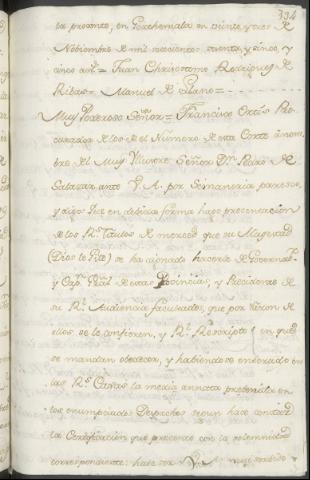 334
la presente, en Goathemala en veinte y tres de
Nobiembre de mil setecientos, sesenta, y cinco, y
cinco años = Juan Chrisostomo Rodrigues de
Ribas = Manuel de Llano =
Muy Poderoso Señor = Francisco Ortis Pro
curador de los de el Numero de esta Corte ânom
bre del Muy Yllustre Señor Dn. Pedro de
Salazar ante V. A. por
y digo: Que en debida forma hago presentacion
de los Rs. titulos de merced que su Magestad
(Dios le Gde) se ha dignado hacerle de Governador
y Capn. Genl. de estas Provincias, y Presidente de
su Rl. Audiencia facultades, que por razon de
ellos se le confieren, y Rl. Rescripto en que
se mandan obedecer, y habiendose enterado en
las Rs. Caxas la media annata prevenida en
los enumpciados Despachos segun hace constar
la Certificacion que presento con la solemnidad
correspondiente: hace ver